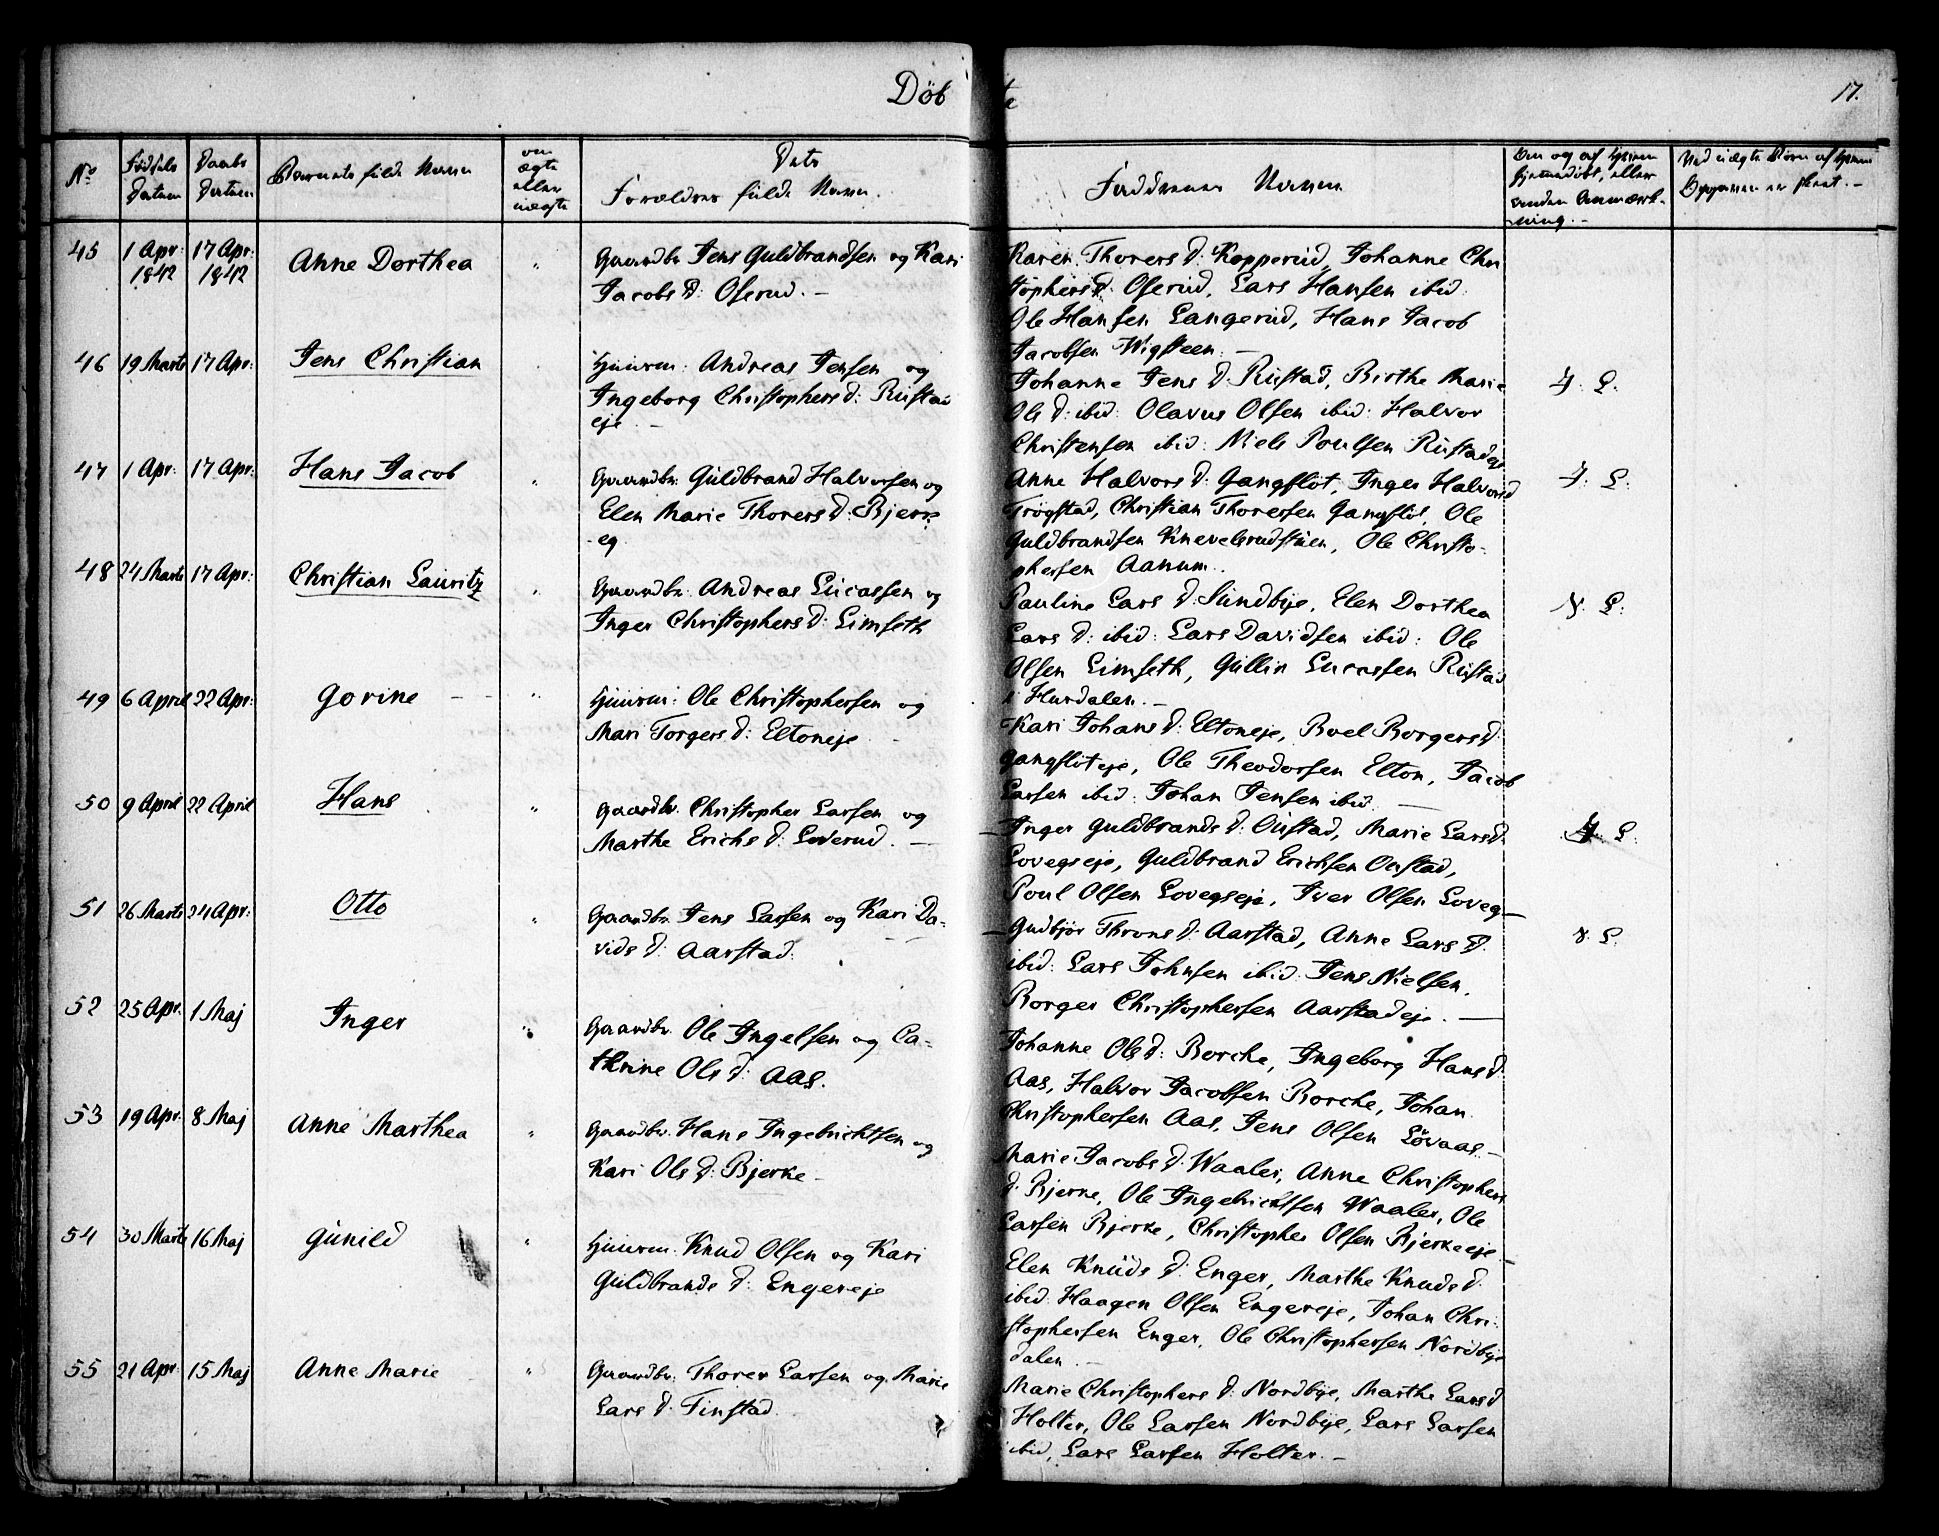 Døbte
17.
No
Fødsels Datum
Daabs Datum
Barnets fulde Navn
om ægte eller uægte
Dets Forældres fulde Navn.
Faddernes Navne
Om og af hvem hjemmedøbt, eller anden Anmærkning.-
Ved uægte Børn af hvem Opgaven er skeet.-
45 1 Apr: 1842 17 Apr: 1842 Anne Dorthea " Gaardbr. Jens Guldbrandsen og Kari
Jacobs D: Oserud. -
Karen Thorers D: Kopperud, Johanne Chri
stophers D: Oserud, Lars Hansen ibid:
Ole Hansen Langerud, Hans Jacob
Jacobsen Wigsteen. -
46 19 Marts 17 Apr: Jens Christian " Huusm: Andreas Jensen og
Ingeborg Christophers D: Rustad
eje. -
Johanne Jens D: Rustad, Birthe Marie
Ols D: ibid: Olavus Olsen ibid: Halvor
Christensen ibid: Niels Poulsen Rustadeje
47 1 Apr: 17 Apr: Hans Jacob " Gaardbr: Guldbrand Halvorsen og
Elen Marie Thorers D: Bjerke
eg
Anne Halvors D: Gangflot, Inger Halvorsd
Trøgstad, Christian Thoresen Gangflot, Ole
Guldbrandsen Knevelsrudstuen, Ole Christo-
phersen Aanum.
48 24 Marts 17 Apr: Christian Lauritz " Gaardbr: Andreas Lucassen og
Inger Christophers D: Limseth
Pauline Lars D: Sundbye, Elen Dorthea
Lars D: ibid: Lars Davidsen ibid: Ole
Olsen Limseth, Gullik Lucassen Rustad
i Hurdalen. -
49 6 April 22 Apr: Gorine - - " Huusm: Ole Christophersen og
Mari Torgers D: Eltoneje -
Kari Johans D: Eltoneje, Boel Borgers D:
Gangfloteje, Ole Theodorsen Elton, Jacob
Larsen ibid: Johan Jensen ibid. -
50 9 April 22 April Hans " Gaardbr. Christopher Larsen og
Marthe Erichs D: Loverud. -
Inger Guldbrands D: Oustad, Marie Lars D:
Lovegseje, Guldbrand Erichsen Oustad,
Poul Olsen Lovegseje, Iver Olsen Loveg-
51 26 Marts 24 Apr: Otto " Gaardbr. Jens Larsen og Kari Da-
vids D: Aarstad.
Gudbjør Throns D: Aarstad, Anne Lars D:
ibid: Lars Johnsen ibid: Jens Nielsen,
Borger Christophersen Aarstadeje. -
52 25 Apr. 1 Maj Inger " Gaardbr. Ole Ingelsen og Ca-
thrine Ols D: Aas.
Johanne Ols D: Borche, Ingeborg Hans D:
Aas, Halvor Jacobsen Borche, Johan
Christophersen Aas, Jens Olsen Løvaas. -
53 19 Apr. 8 Maj Anne Marthea " Gaardbr. Hans Ingebrichtsen og
Kari Ols D: Bjerke -
Marie Jacobs D: Waaler, Anne Christophers
D: Bjerke, Ole Ingebrichtsen Waaler, Ole
Larsen Bjerke, Christopher Olsen Bjerkeeje -
54 30 Marts 16 Maj Gunild " Huusm. Knud Olsen og Kari
Guldbrands D: Engereje
Elen Knuds D: Enger, Marthe Knuds D:
ibid. Haagen Olsen Engereje, Johan Chri-
stophersen Enger, Ole Christophersen Nordbye
dalen -
55 21 Apr. 15 Maj Anne Marie " Gaardbr: Thorer Larsen og Marie
Lars D: Finstad.
Marie Christophers D: Nordbye, Marthe Lars D
Holter, Ole Larsen Nordbye, Lars Larsen
ibid, Lars Larsen Holter. -